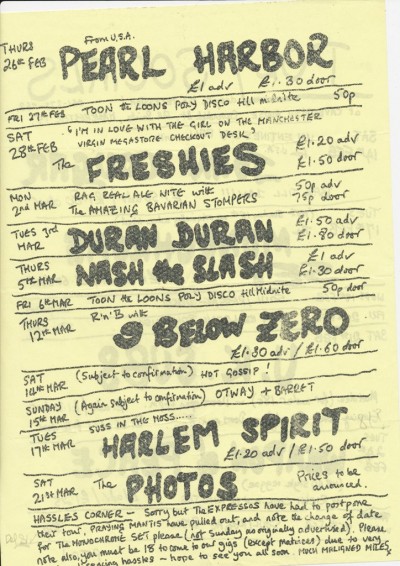 From U.S.A.
THURS
26th FEB
PEARL HARBOR
£1 adv £1.30 door
FRI 27th FEB TOON the LOONS POXY DISCO till midnite 50p
SAT
28th FEB
"I'M IN LOVE WITH THE GIRL ON THE MANCHESTER
VIRGIN MEGASTORE CHECKOUT DESK"
The FRESHIES
£1.20 adv
£1.50 door
MON
2nd MAR
RAG REAL ALE NITE with
The AMAZING BAVARIAN STOMPERS
50p adv
75p door
TUES 3rd
MAR
DURAN DURAN
£1.50 adv
£1.80 door
THURS
5th MAR
NASH the SLASH
£1 adv
£1.30 door
FRI 6th MAR TOON the LOONS POXY DISCO till Midnite 50p door
THURS
12th MAR
R'n'B with
9 BELOW ZERO
£1.30 adv / £1.60 door
SAT
14th MAR
(Subject to confirmation) HOT GOSSIP!
SUNDAY
15th MAR
(Again Subject to confirmation) OTWAY + BARRET
TUES
17th MAR
SUSS IN THE MOSS.....
HARLEM SPIRIT
£1.20 adv / £1.50 door
SAT
21st MAR
The PHOTOS
Prices to be
announced.
HASSLES CORNER - Sorry but The EXPRESSOS have had to postpone
their tour, PRAYING MANTIS have pulled out, and note the change of date
for The MONOCHROME SET please (not Sunday as originally advertised). Please
note also, you must be 18 to come to our gigs (except matinees) due to very
hassles - hope to see you all soon. MUCH MALIGNED MILES